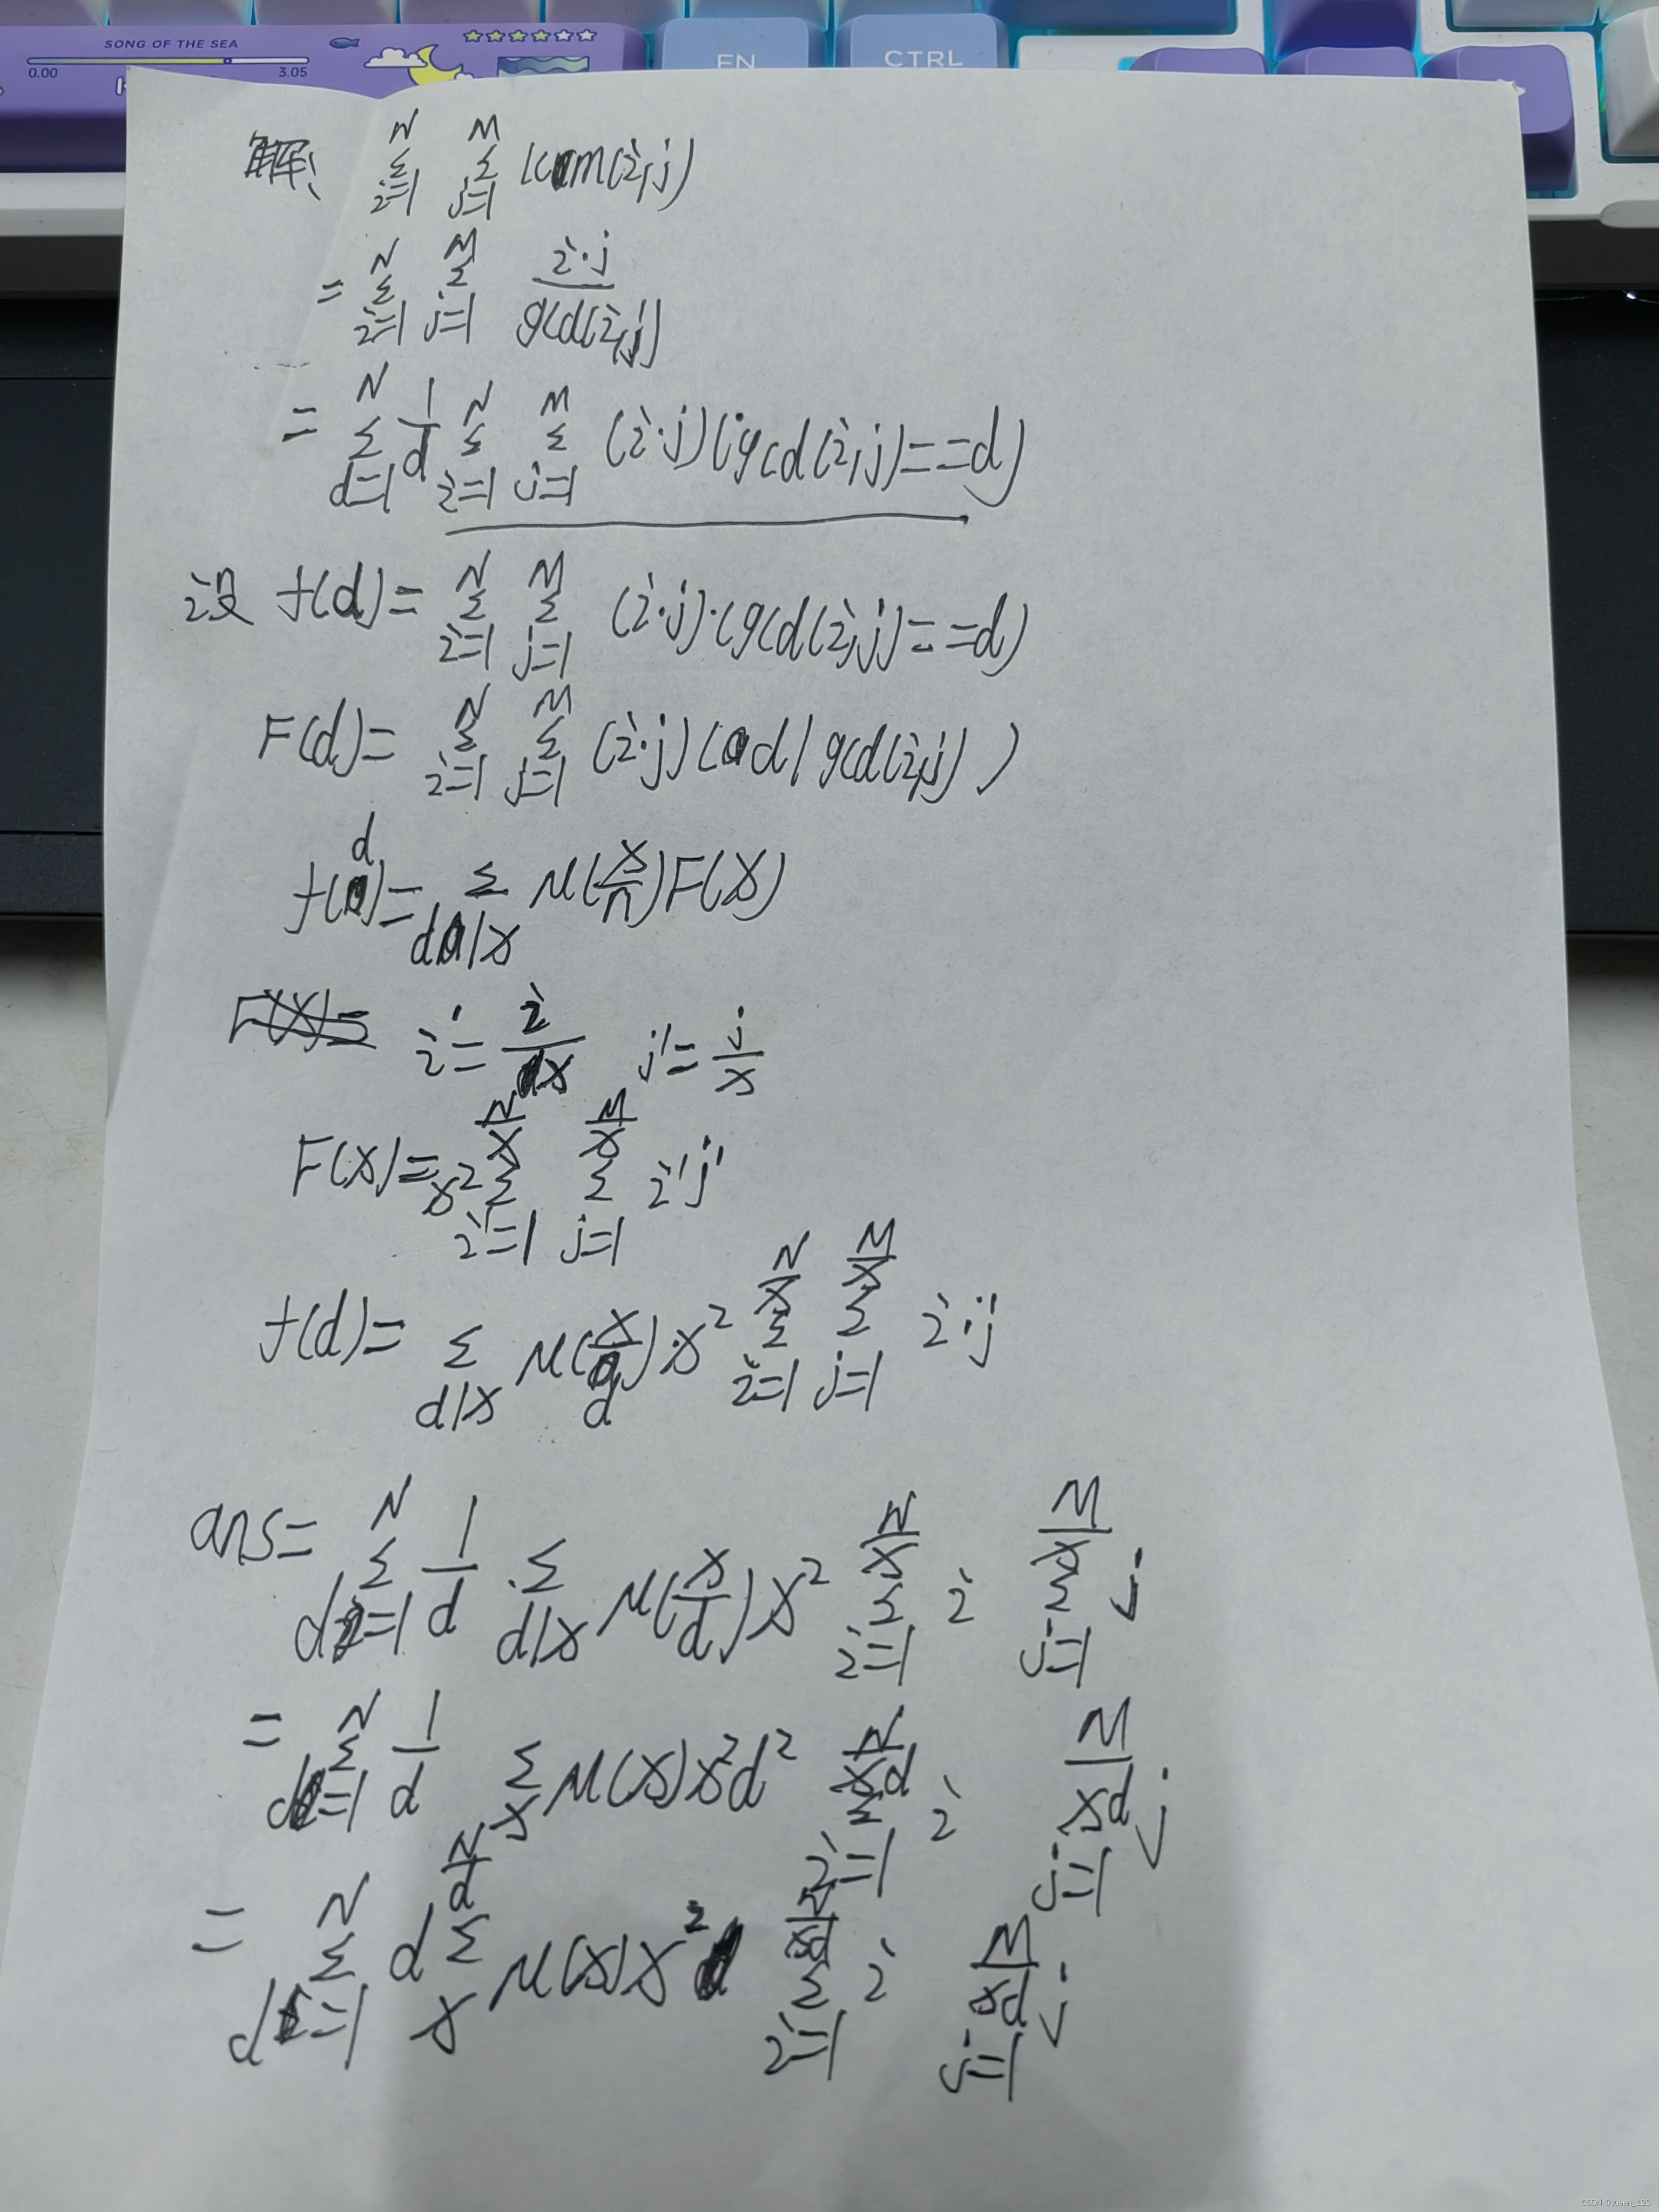 SONG OF THE SEA
0.00 3.05
FN CTRL
解: \sum_{i=1}^{N} \sum_{j=1}^{M} lcm(i,j)
= \sum_{i=1}^{N} \sum_{j=1}^{M} \frac{i·j}{gcd(i,j)}
= \sum_{d=1}^{N} \frac{1}{d} \sum_{i=1}^{N} \sum_{j=1}^{M} (i·j)(gcd(i,j)==d)
设 f(d)= \sum_{i=1}^{N} \sum_{j=1}^{M} (i·j)·(gcd(i,j)==d)
F(d)= \sum_{i=1}^{N} \sum_{j=1}^{M} (i·j)(d|gcd(i,j))
f(d)= \sum_{d|x} μ(\frac{x}{n})F(x)
i'= \frac{i}{x} j'= \frac{j}{x}
F(x)= x^2 \sum_{i'=1}^{\frac{N}{x}} \sum_{j=1}^{\frac{M}{x}} i'j'
f(d)= \sum_{d|x} μ(\frac{x}{d})·x^2 \sum_{i=1}^{\frac{N}{x}} \sum_{j=1}^{\frac{M}{x}} i·j
ans= \sum_{d=1}^{N} \frac{1}{d} · \sum_{d|x} μ(\frac{x}{d})x^2 \sum_{i=1}^{\frac{N}{x}} i \sum_{j=1}^{\frac{M}{x}} j
= \sum_{d=1}^{N} \frac{1}{d} \sum_{x} μ(x)x^2d^2 \sum_{i=1}^{\frac{N}{xd}} i \sum_{j=1}^{\frac{M}{xd}} j
= \sum_{d=1}^{N} d \sum_{x}^{\frac{N}{d}} μ(x)x^2 \sum_{i=1}^{\frac{N}{xd}} i \sum_{j=1}^{\frac{M}{xd}} j
CSDN @yusen_123